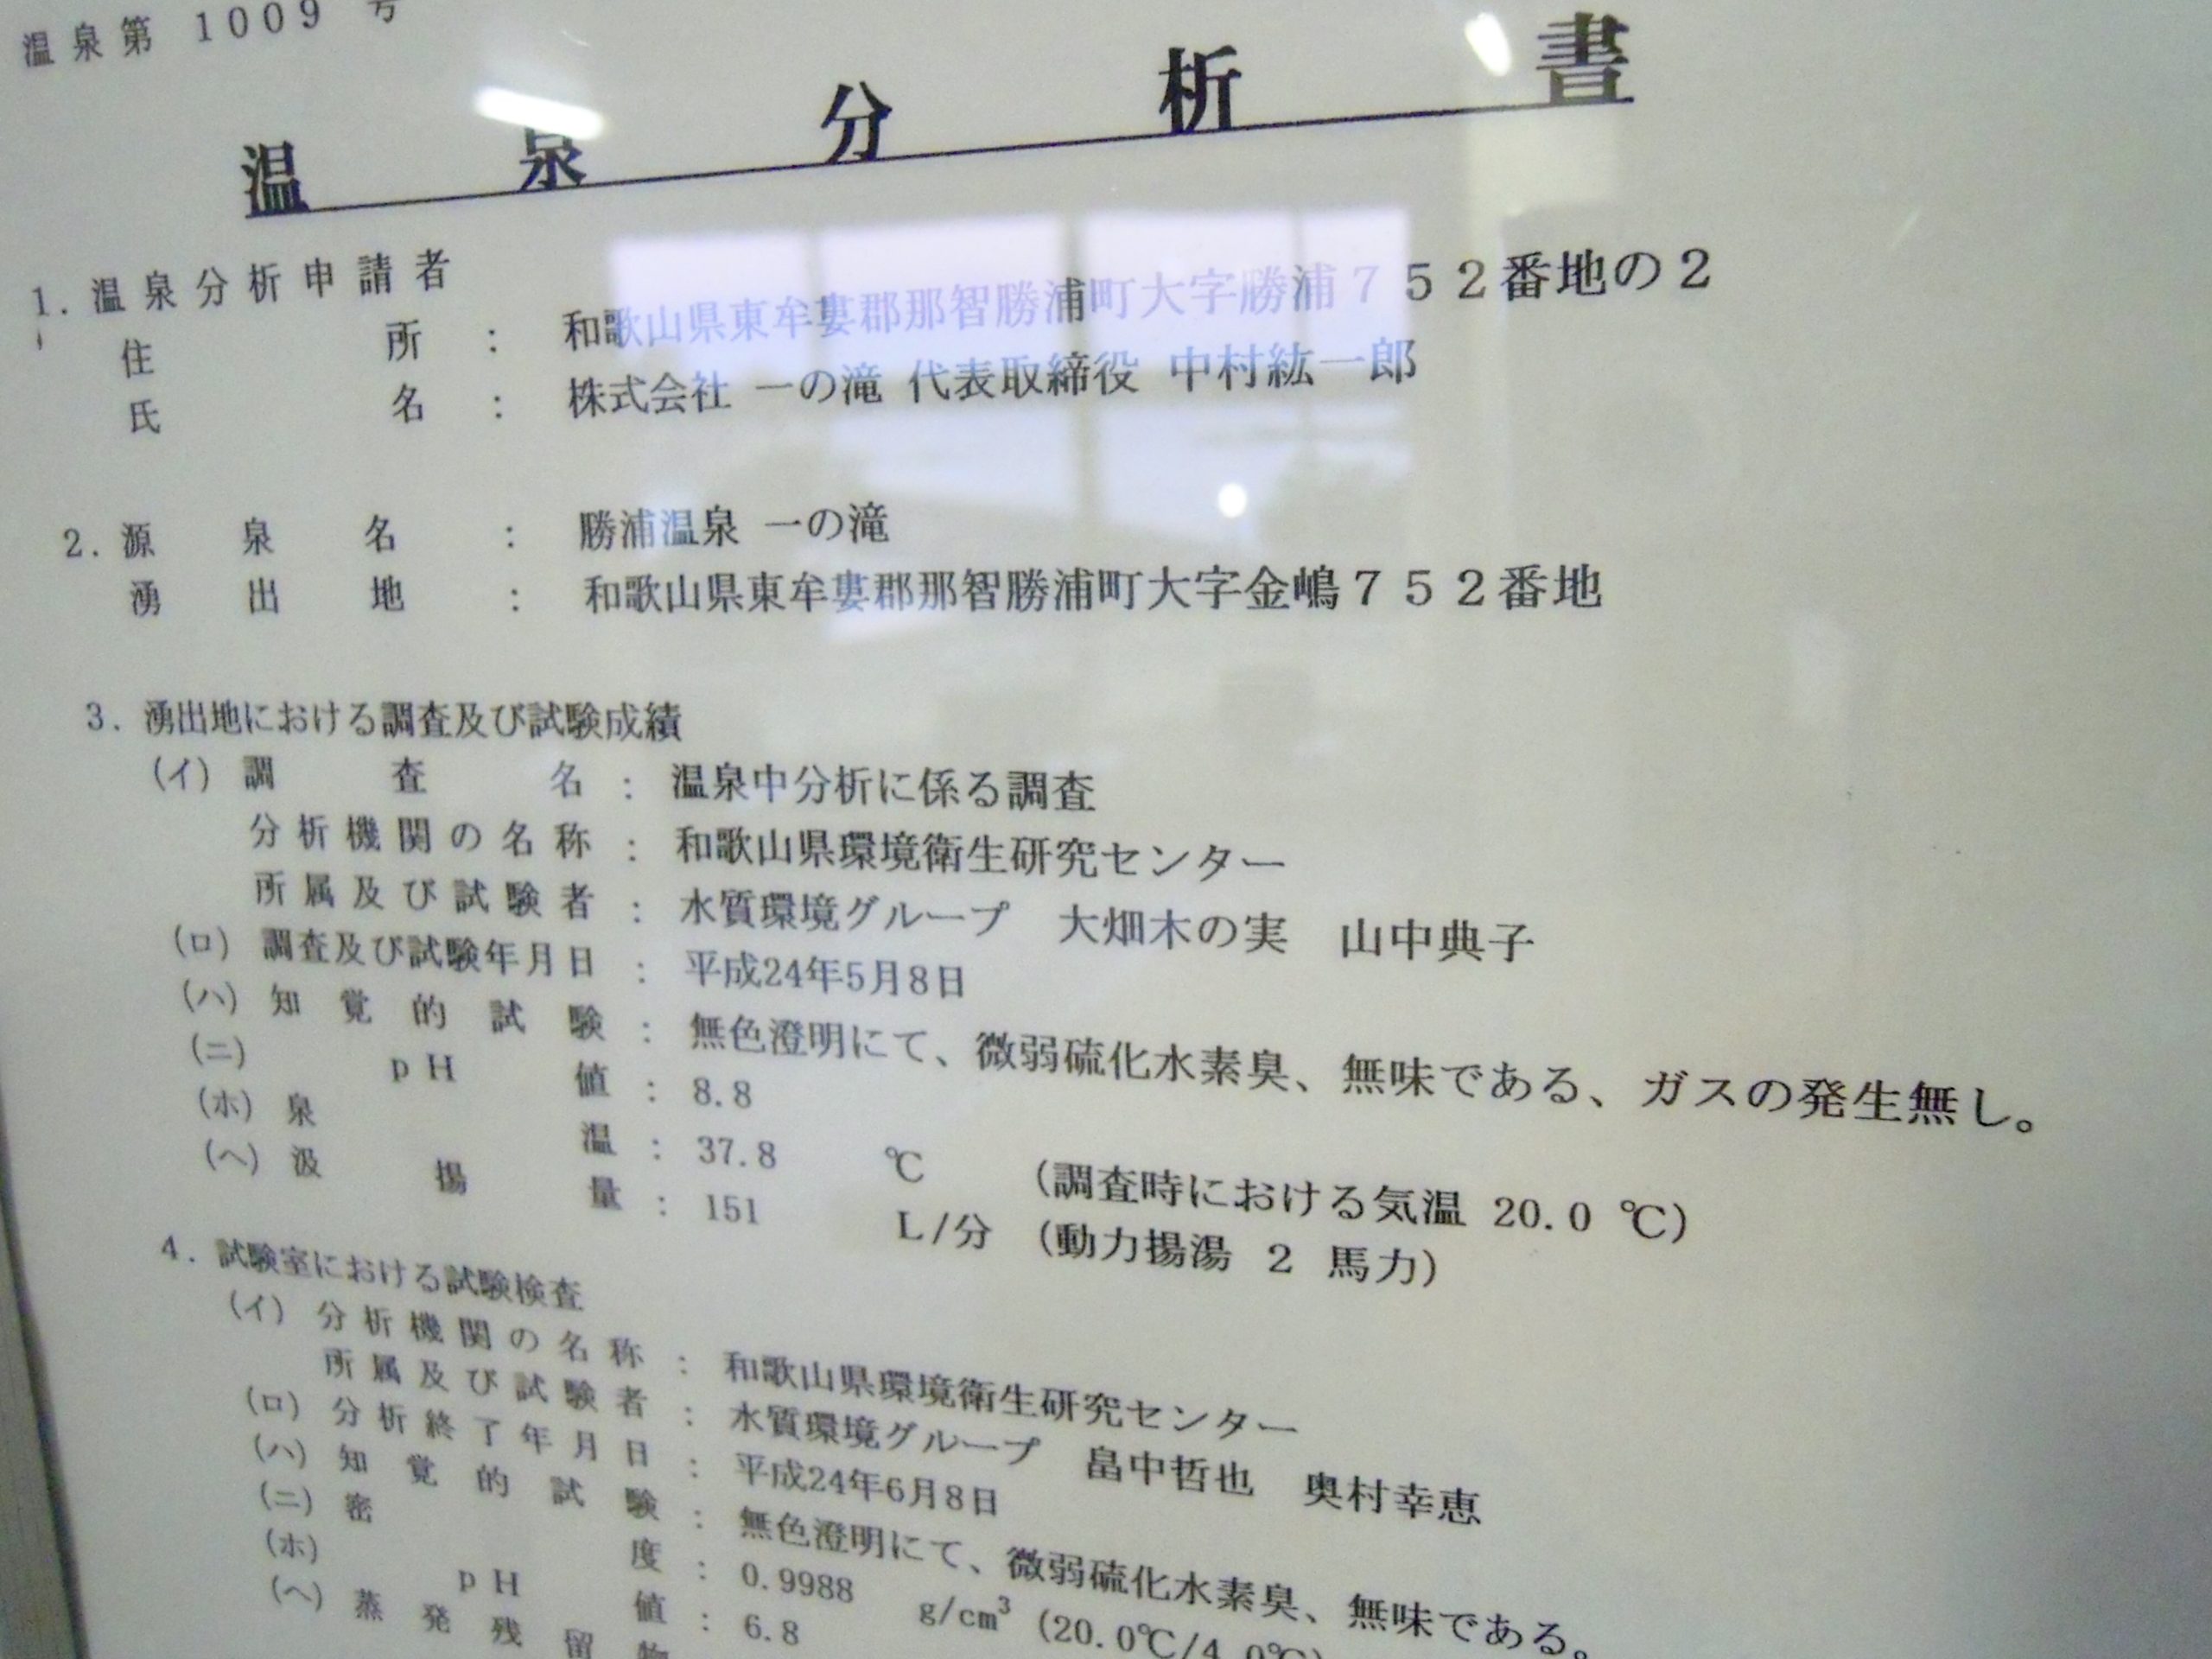 温泉第 1009 号
温泉分析書
1. 温泉分析申請者
住所 : 和歌山県東牟婁郡那智勝浦町大字勝浦７５２番地の２
氏名 : 株式会社 一の滝 代表取締役 中村紘一郎
2. 源泉名 : 勝浦温泉 一の滝
湧出地 : 和歌山県東牟婁郡那智勝浦町大字金嶋７５２番地
3. 湧出地における調査及び試験成績
(イ) 調査名 : 温泉中分析に係る調査
分析機関の名称 : 和歌山県環境衛生研究センター
所属及び試験者 : 水質環境グループ 大畑木の実 山中典子
(ロ) 調査及び試験年月日 : 平成24年5月8日
(ハ) 知覚的試験 : 無色澄明にて、微弱硫化水素臭、無味である、ガスの発生無し。
(ニ) pH値 : 8.8
(ホ) 泉温 : 37.8 ℃ (調査時における気温 20.0 ℃)
(ヘ) 汲揚量 : 151 L/分 (動力揚湯 2 馬力)
4. 試験室における試験検査
(イ) 分析機関の名称 : 和歌山県環境衛生研究センター
所属及び試験者 : 水質環境グループ 畠中哲也 奥村幸恵
(ロ) 分析終了年月日 : 平成24年6月8日
(ハ) 知覚的試験 : 無色澄明にて、微弱硫化水素臭、無味である。
(ニ) 密度 : 0.9988 g/cm³ (20.0℃/4.0℃)
(ホ) pH値 : 6.8
(ヘ) 蒸発残留物